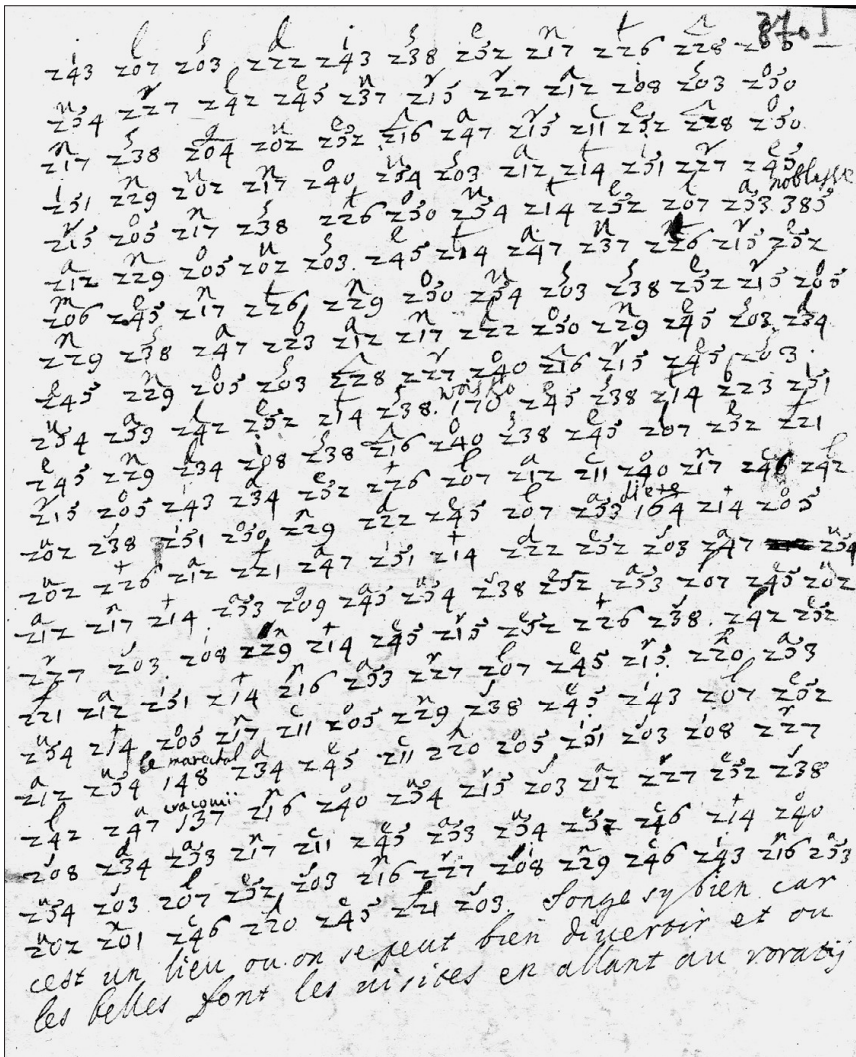 370
i l s d i s e n t p
243 207 203 222 243 238 252 217 226 228 205
u r l e u r r a i s o
254 227 242 245 237 215 227 212 208 203 250
n s q u e p a r c e p o
217 238 204 202 252 216 247 215 211 252 228 250
i n u n o u s a t i r e
251 229 202 217 240 254 203 212 214 251 227 245
r o n s t o u t e l a noblesse
215 205 217 238 226 250 254 214 252 207 253 385
a n o u s e t a n t r e
212 229 205 202 203 245 214 247 237 226 215 252
m e n t n o u s s e r o
206 245 217 226 229 250 254 203 238 252 215 205
n s a b a n d o n e s d
229 238 247 223 212 217 222 250 229 245 203 234
e n o s p r o p r e s
245 229 205 203 228 227 240 216 215 245 203
u a l e t s woisko e s t b i
254 253 242 252 214 238 170 245 238 214 223 251
e n d i s p o s e l e f
245 229 234 208 238 216 240 238 245 207 252 221
r o i d e t l a c o n c l
215 205 243 234 252 226 207 212 211 240 217 246 242
u s i o n d e l a diete t o
202 238 251 250 229 222 245 207 253 164 214 205
u t a f a i t d e s a u
202 226 212 221 247 251 214 222 252 203 247 254
a n t a g e u s e a l e u
212 217 214 253 209 245 254 238 252 253 207 245 202
r s i n t e r e t s l e
227 203 208 229 214 245 215 252 226 238 242 252
f a i t p a r l e r h a
221 212 251 214 216 253 227 207 245 215 220 253
u t o n c o n s e i l e
254 214 205 217 211 205 229 238 245 243 207 252
a u le marechal d e c h o i s i r
212 254 148 234 245 211 220 205 251 203 208 227
l a cracouii p o u r s a r e s
242 247 137 216 240 254 215 203 212 227 252 238
i d a n c e a u e c t o
208 234 253 217 211 245 253 254 252 246 214 240
u s l e s p r i n c i p a
254 203 207 252 203 216 227 208 229 246 243 216 253
u x c h e f s
202 201 246 220 245 221 203. Songe sy bien car
cest un lieu ou on se peut bien diuertir et ou
les belles font les uisites en allant au roratij